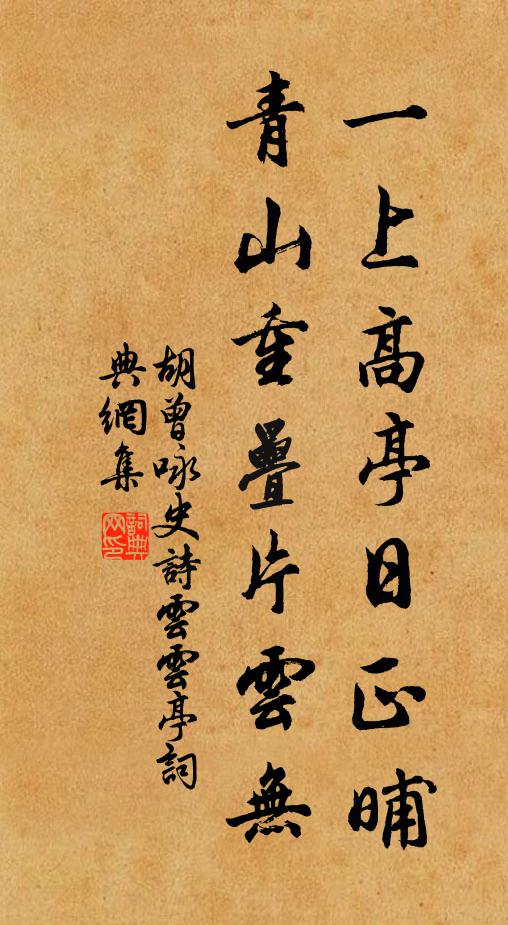 一上高亭日正晡
青山重疊片雲無
胡曾咏史詩雲雲亭詞
典網集
詞典網印